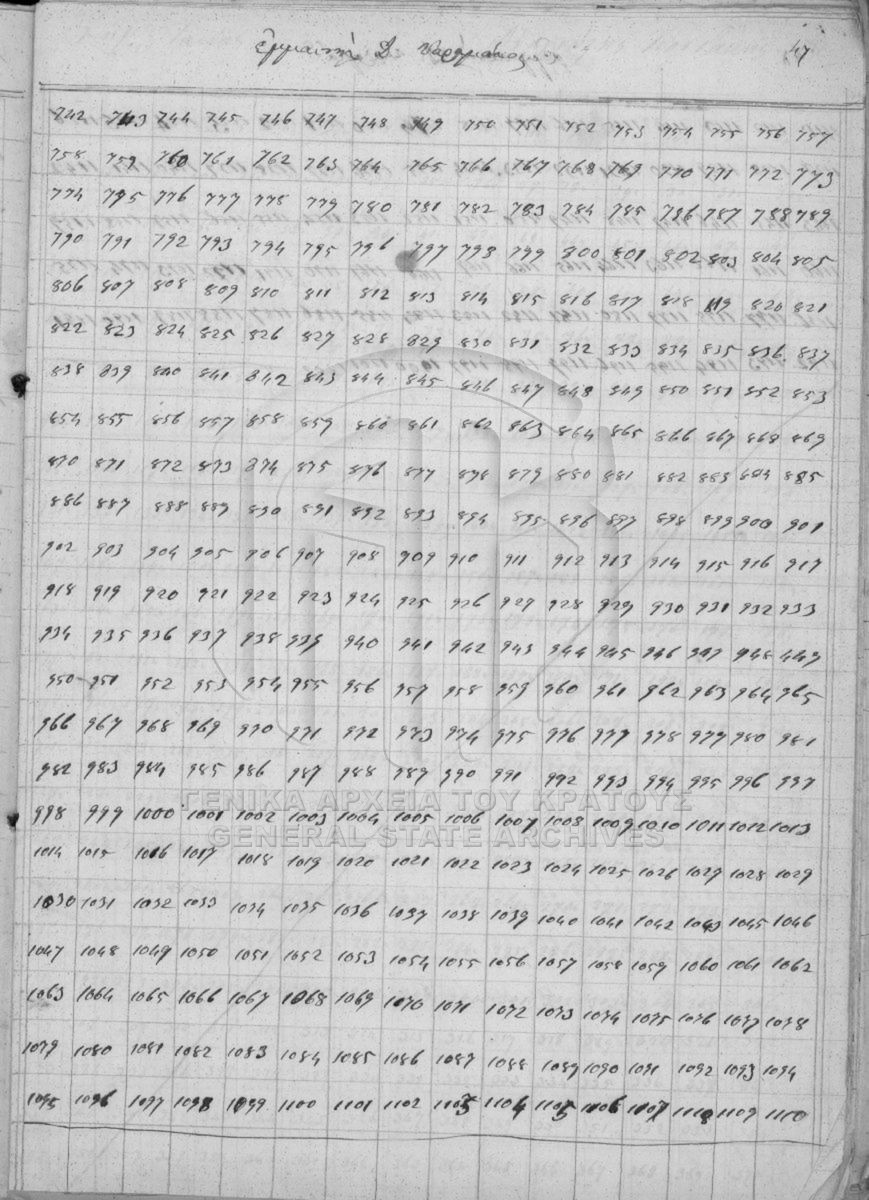 47
742 743 744 745 746 747 748 749 750 751 752 753 754 755 756 757
758 759 760 761 762 763 764 765 766 767 768 769 770 771 772 773
774 775 776 777 778 779 780 781 782 783 784 785 786 787 788 789
790 791 792 793 794 795 796 797 798 799 800 801 802 803 804 805
806 807 808 809 810 811 812 813 814 815 816 817 818 819 820 821
822 823 824 825 826 827 828 829 830 831 832 833 834 835 836 837
838 839 840 841 842 843 844 845 846 847 848 849 850 851 852 853
854 855 856 857 858 859 860 861 862 863 864 865 866 867 868 869
870 871 872 873 874 875 876 877 878 879 880 881 882 883 884 885
886 887 888 889 890 891 892 893 894 895 896 897 898 899 900 901
902 903 904 905 906 907 908 909 910 911 912 913 914 915 916 917
918 919 920 921 922 923 924 925 926 927 928 929 930 931 932 933
934 935 936 937 938 939 940 941 942 943 944 945 946 947 948 949
950 951 952 953 954 955 956 957 958 959 960 961 962 963 964 965
966 967 968 969 970 971 972 973 974 975 976 977 978 979 980 981
982 983 984 985 986 987 988 989 990 991 992 993 994 995 996 997
ΓΕΝΙΚΑ ΑΡΧΕΙΑ ΤΟΥ ΚΡΑΤΟΥΣ
998 999 1000 1001 1002 1003 1004 1005 1006 1007 1008 1009 1010 1011 1012 1013
GENERAL STATE ARCHIVES
1014 1015 1016 1017 1018 1019 1020 1021 1022 1023 1024 1025 1026 1027 1028 1029
1030 1031 1032 1033 1034 1035 1036 1037 1038 1039 1040 1041 1042 1043 1045 1046
1047 1048 1049 1050 1051 1052 1053 1054 1055 1056 1057 1058 1059 1060 1061 1062
1063 1064 1065 1066 1067 1068 1069 1070 1071 1072 1073 1074 1075 1076 1077 1078
1079 1080 1081 1082 1083 1084 1085 1086 1087 1088 1089 1090 1091 1092 1093 1094
1095 1096 1097 1098 1099 1100 1101 1102 1103 1104 1105 1106 1107 1108 1109 1110